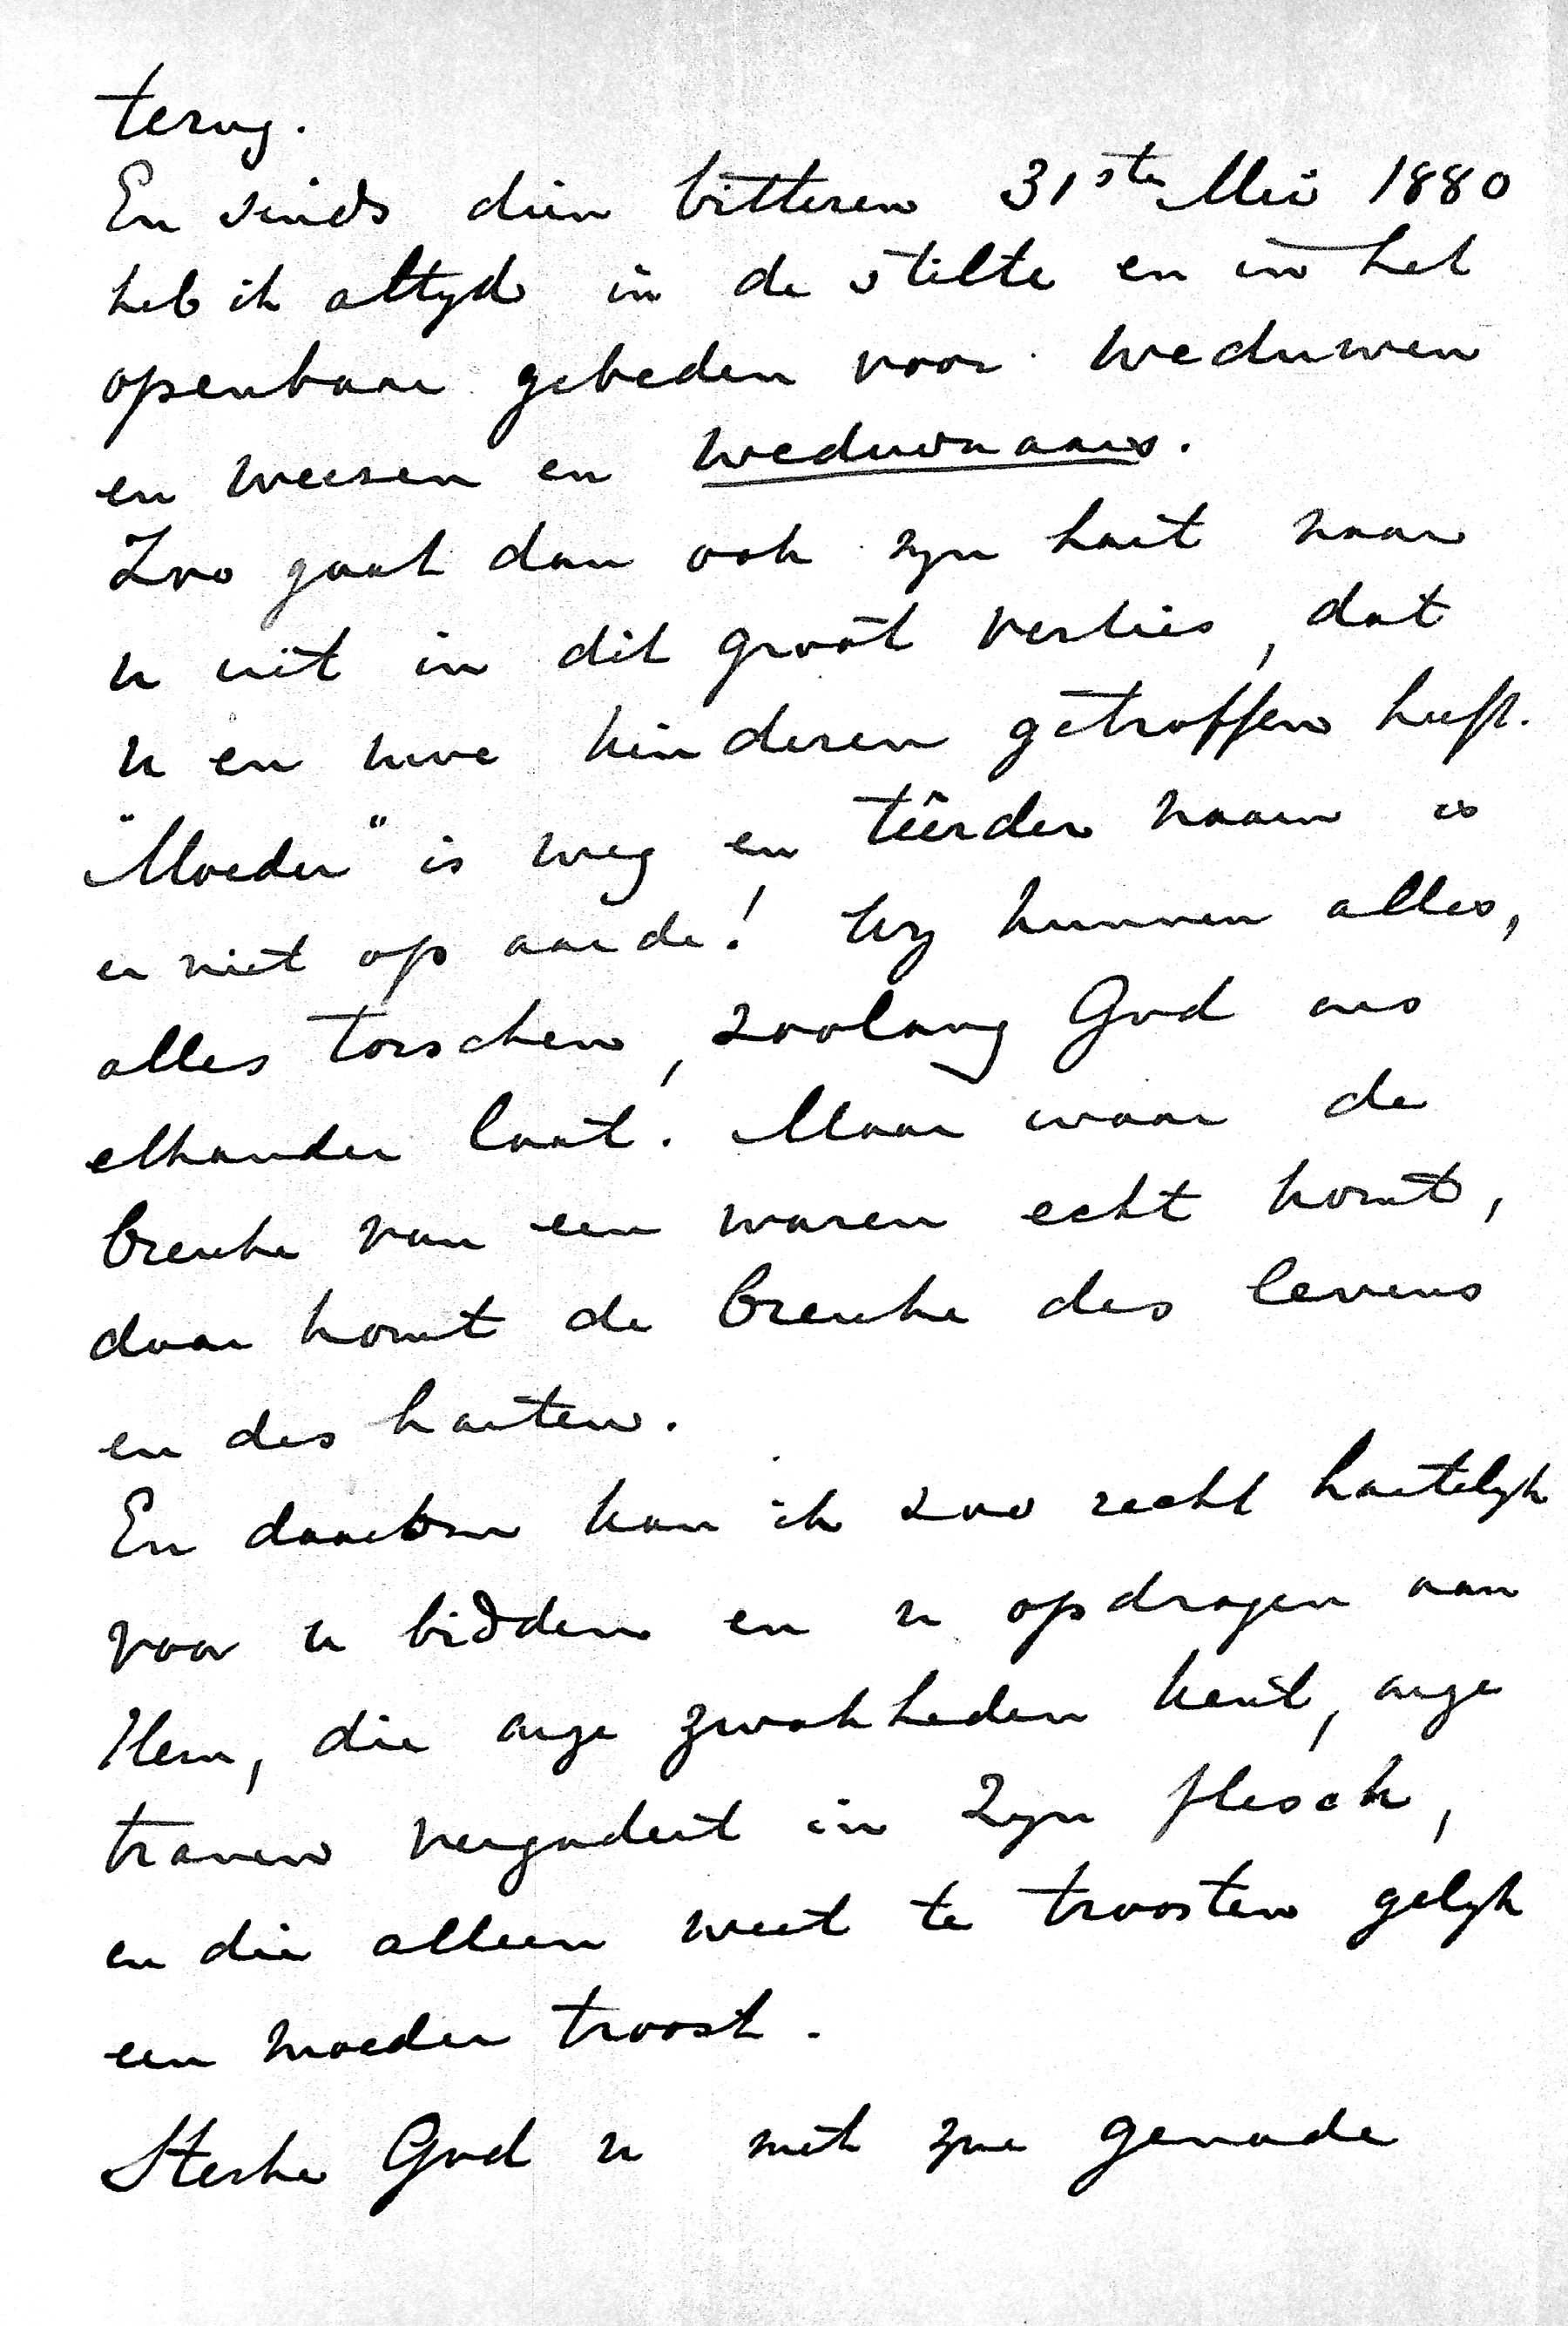 terug.
En sinds dien bitteren 31sten Mei 1880
heb ik altyd in de stilte en in het
openbaar gebeden voor weduwen
en weezen en weduwnaars.
Zoo gaat dan ook myn hart naar
u uit in dit groot verlies, dat
u en uwe kinderen getroffen heeft.
"Moeder" is weg en têerder naam is
er niet op aarde! Wy kunnen alles,
alles torschen, zoolang God ons
elkander laat. Maar waar de
breuke van een waren echt komt,
daar komt de breuke des levens
en des harten.
En daarom kan ik zoo recht hartelyk
voor u bidden en u opdragen aan
Hem, die onze zwakheden kent, onze
tranen vergadert in Zyn flesch,
en die alleen weet te troosten gelyk
een moeder troost.
Sterke God u met zyne genade